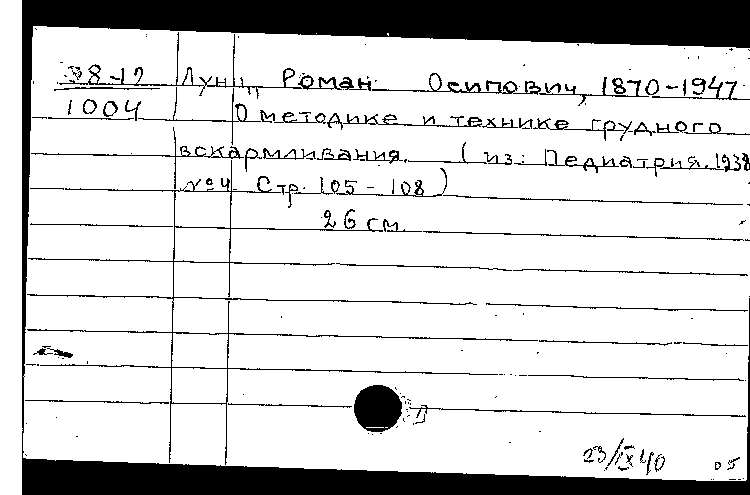 38-17 Лунц, Роман Осипович, 1870-1947
1004 О методике и технике грудного
вскармливания. (из: Педиатрия. 1938
№4 Стр. 105-108)
26 см.
23/IX 40